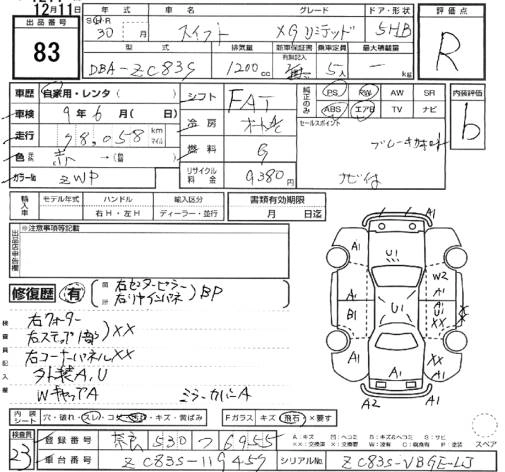 12月11日
出品番号
83
年式 車名 グレード ドア・形状
30 月 スイフト XGリミテッド 5HB
型式 排気量 新車保証書 乗車定員 最大積載量
有無記入
DBA-ZC83S 1200cc 無 5人 — kg
評価点
R
車歴 自家用・レンタ( )
車検 9年6月( )
走行 98,058 km マイル
色 赤 →( )
カラーNo ZWP
シフト FAT
冷房 オートAC
燃料 G
リサイクル料金 9380円
純正のみ
PS PW AW SR
ABS エアB TV ナビ
セールスポイント
ブレーキサポート
ナビ付
内装評価
b
輸入車 モデル年式 ハンドル 輸入区分
右H・左H ディーラー・並行
書類有効期限
月 日迄
出品店申告欄
※注意事項等記載
修復歴 有 箇所 右センターピラー
右リヤインパネ BP
検査員記入欄
右クォーター
右ステップ(部) XX
右コーナーパネルXX
外装A,U
WキャップA
ミラーカバーA
A1
A1
U1
W2
A1
B1
U1
A1
U1
XX
A1
XX
A1
A2
A1
内装シート 穴・破れ・スレ・コゲ・汚れ・キズ・黄ばみ
Fガラス キズ・飛石・×要す
検査員 23
登録番号 奈良 530 つ 6955
車台番号 ZC83S-119459
シリアルNo ZC83S-VBGE-LJ
スペア